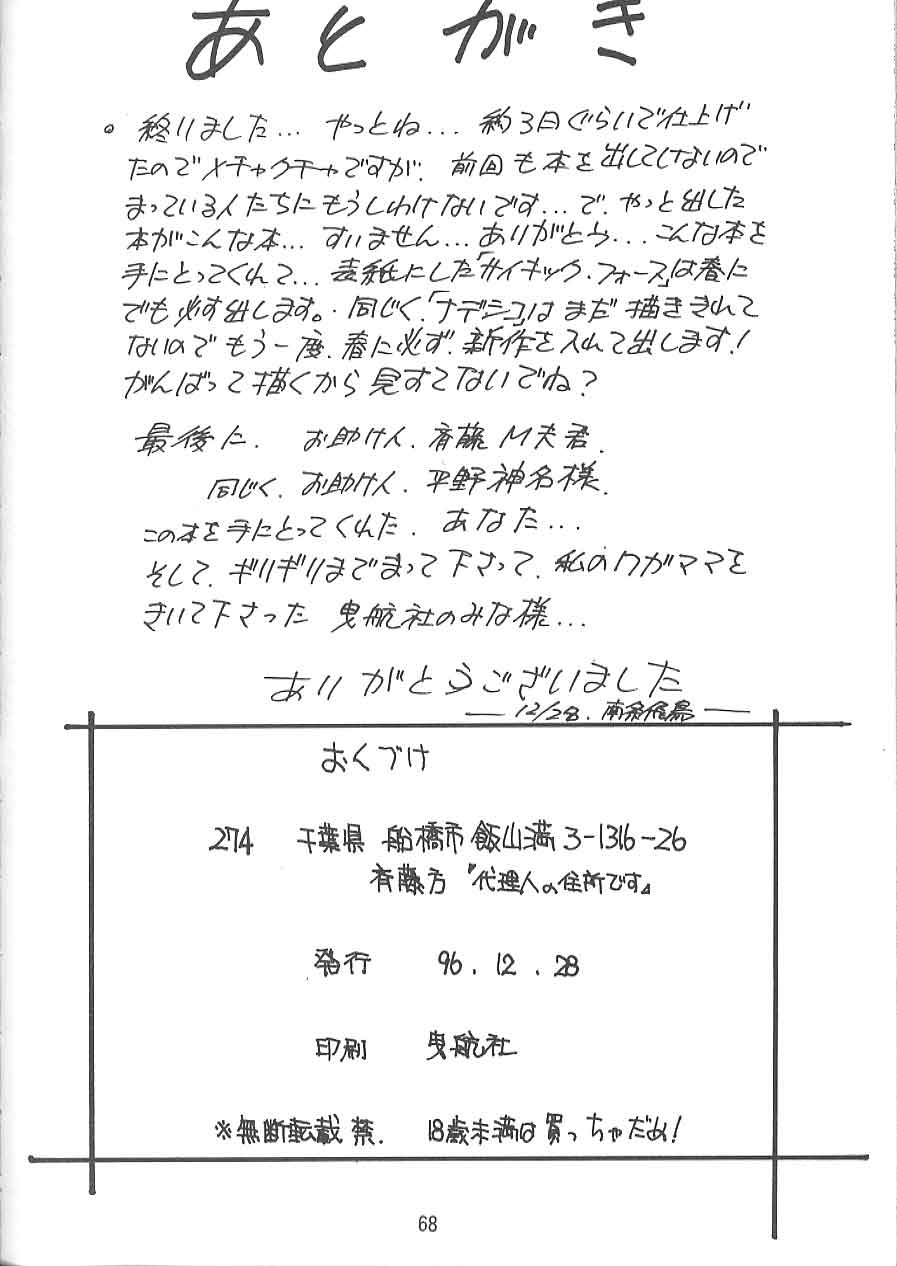 あとがき
。終りました... やっとね... 約3日ぐらいで仕上げ
たのでメチャクチャですが、前回も本を出してしないので
まっている人たちにもうしわけないです...で、やっと出した
本がこんな本... すいません... ありがとう... こんな本を
手にとってくれて... 表紙にした「サイキック・フォース」は春に
でも必ず出します。・同じく、「ナデシコ」はまだ描ききれて
ないのでもう一度、春に必ず、新作を入れて出します!
がんばって描くから見すてないでね?
最後に、お助け人、斉藤M夫君、
同じく、お助け人、平野神名様、
この本を手にとってくれた、あなた...
そして、ギリギリまでまって下さって、私のワガママを
きいて下さった 曳航社のみな様...
ありがとうございました
— 12/28. 南条飛鳥 —
おくづけ
274 千葉県 船橋市 飯山満3-1316-26
斉藤方『代理人の住所です』
発行 96.12.28
印刷 曳航社
※無断転載禁. 18歳未満は買っちゃだめ!
68